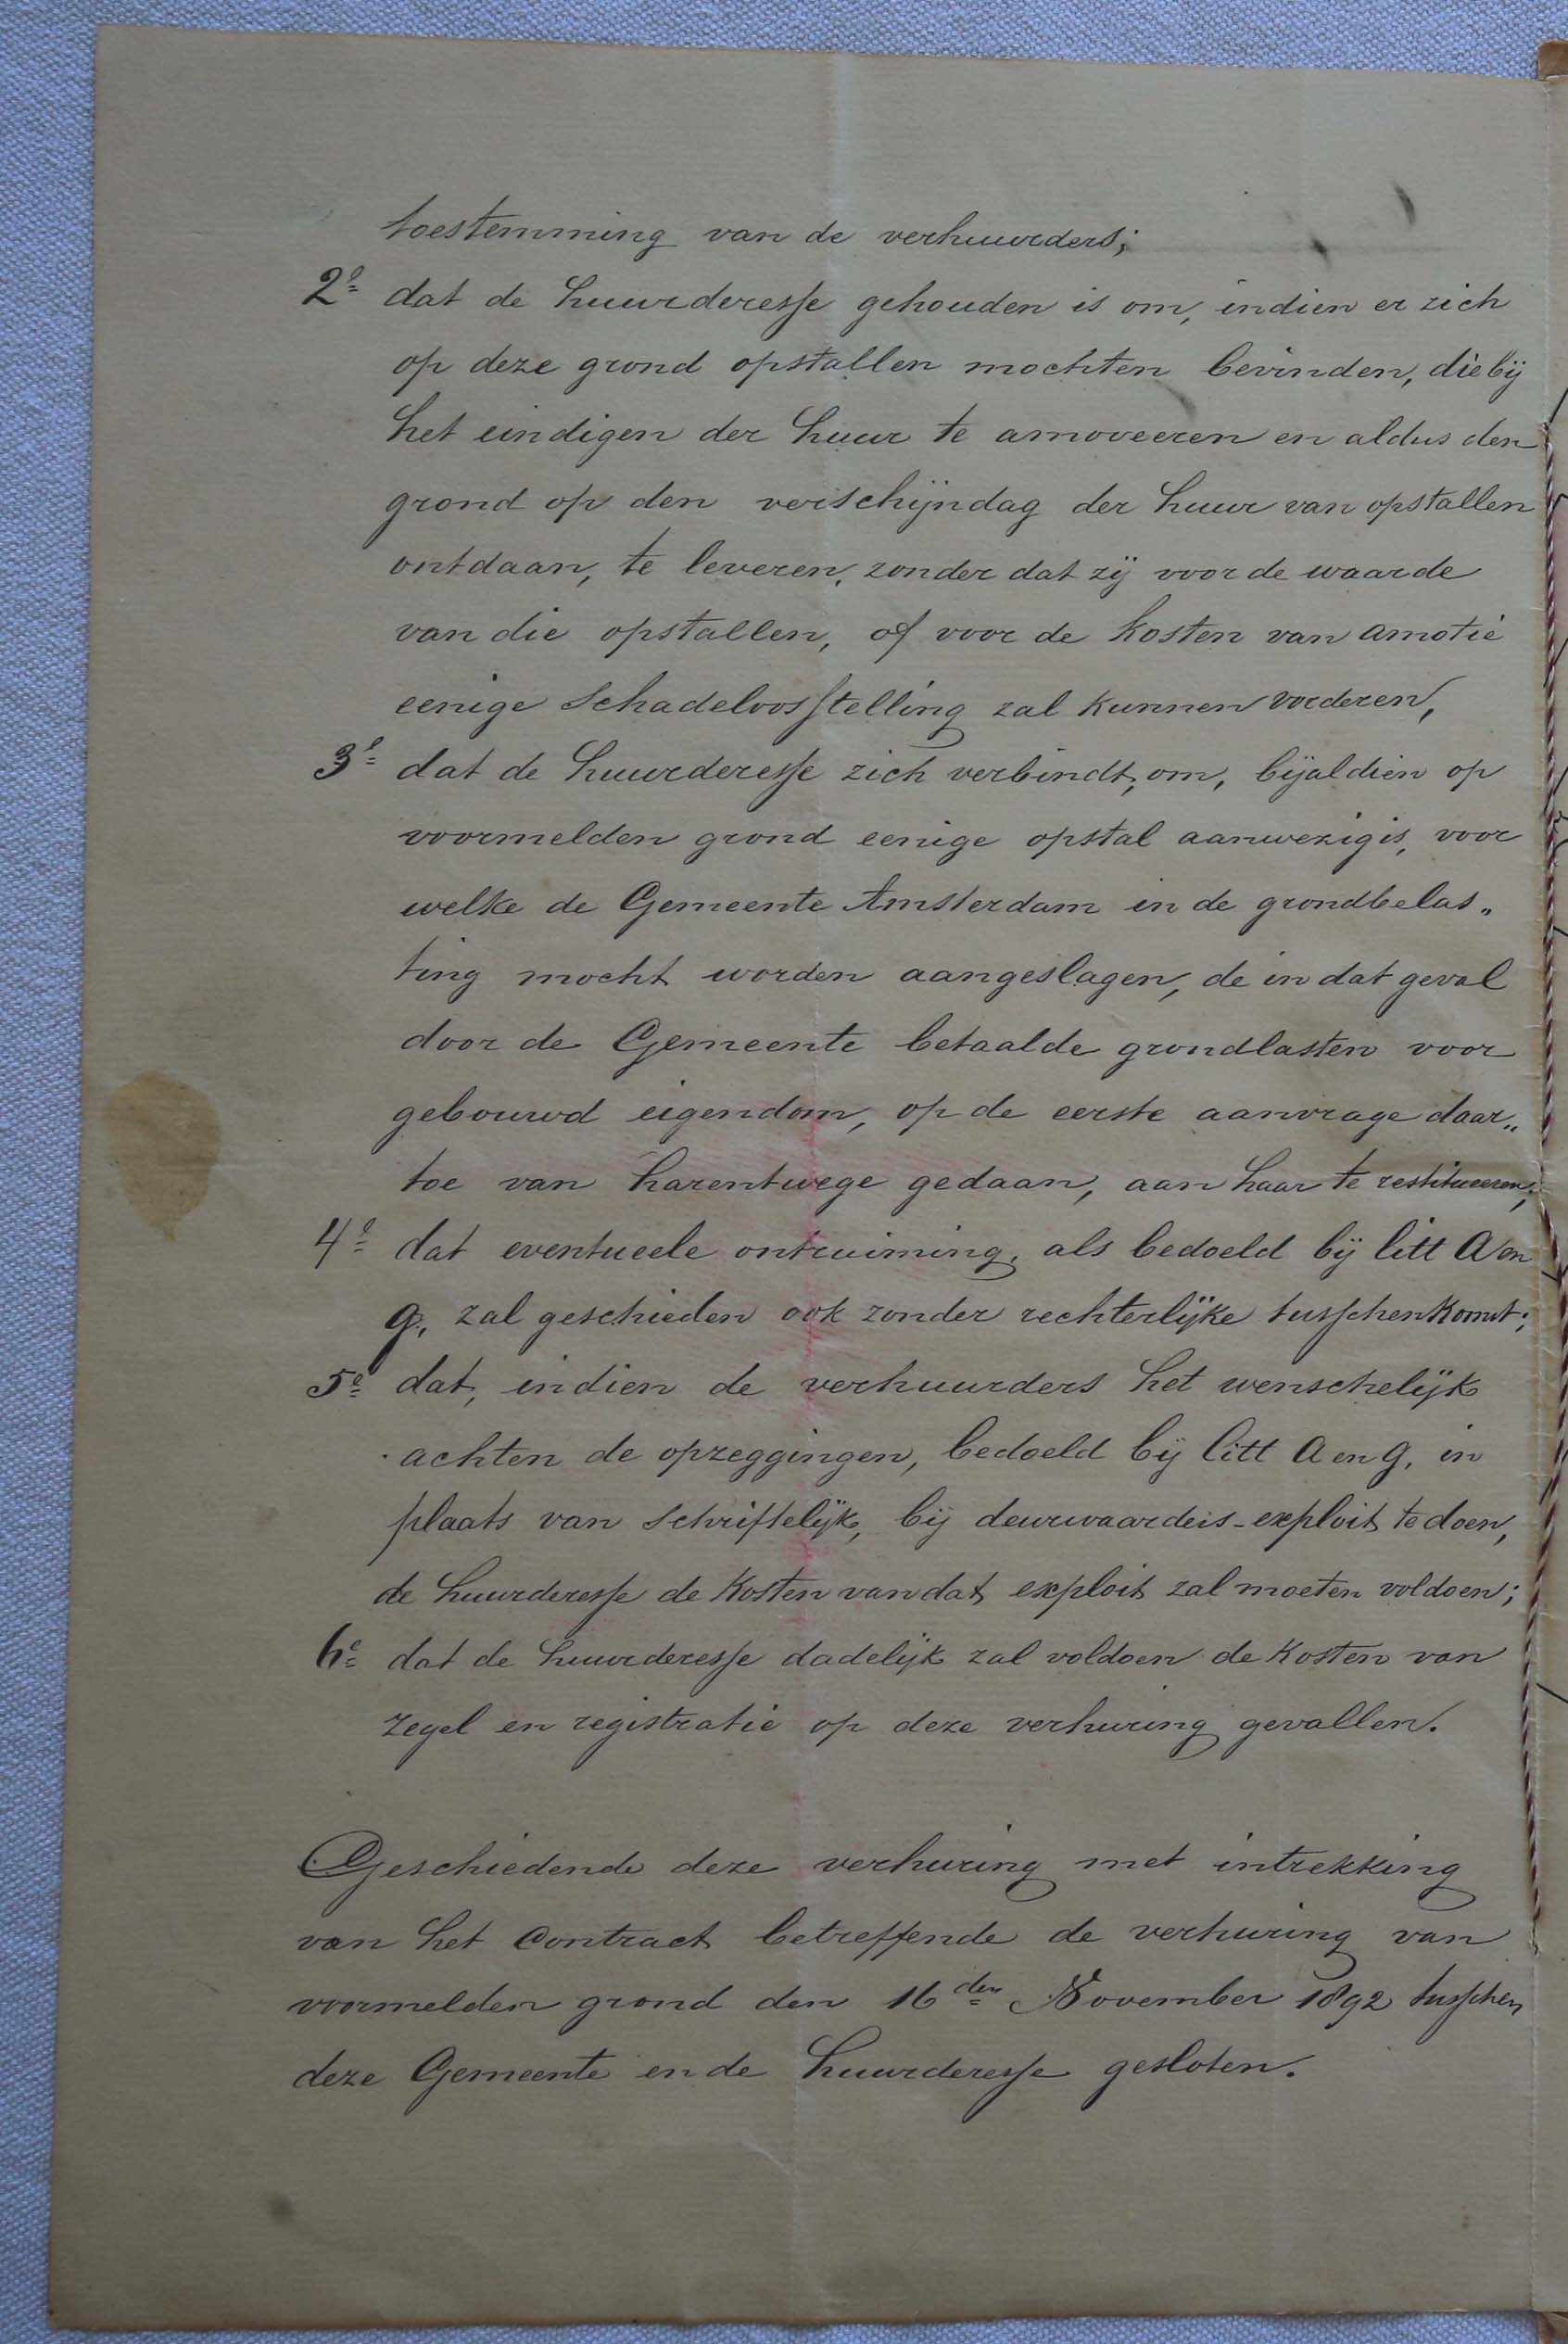 toestemming van de verhuurders;
2e dat de huurderesse gehouden is om, indien er zich
op deze grond opstallen mochten bevinden, die bij
het eindigen der huur te amoveeren en aldus den
grond op den verschijndag der huur van opstallen
ontdaan, te leveren, zonder dat zij voor de waarde
van die opstallen, of voor de kosten van amotie
eenige schadeloosstelling zal kunnen vorderen,
3e dat de huurderesse zich verbindt, om, bijaldien op
voormelden grond eenige opstal aanwezig is, voor
welke de Gemeente Amsterdam in de grondbelas„
ting mocht worden aangeslagen, de in dat geval
door de Gemeente betaalde grondlasten voor
gebouwd eigendom, op de eerste aanvrage daar„
toe van harentwege gedaan, aan haar te restitueeren;
4e dat eventueele ontruiming, als bedoeld bij litt a en
g, zal geschieden ook zonder rechterlijke tusschenkomst;
5e dat, indien de verhuurders het wenschelijk
achten de opzeggingen, bedoeld bij litt a en g, in
plaats van schriftelijk, bij deurwaarders-exploit te doen,
de huurderesse de kosten van dat exploit zal moeten voldoen;
6e dat de huurderesse dadelijk zal voldoen de kosten van
zegel en registratie op deze verhuring gevallen.
Geschiedende deze verhuring met intrekking
van het contract betreffende de verhuring van
voormelden grond den 16den November 1892 tusschen
deze Gemeente en de huurderesse gesloten.